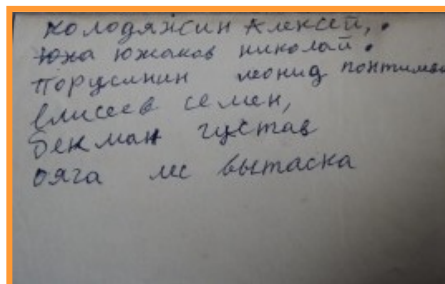 Колодяжин Алексей,.
Южа Южаков Николай.
Порусинин Леонид
Елисеев Семен,
Бекман Густав
ояга лс вытаска